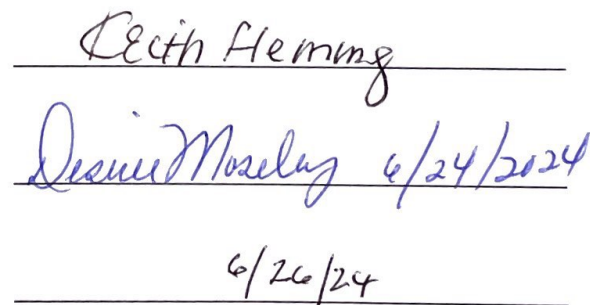 Keith Fleming
Desiree Moseley 6/24/2024
6/26/24